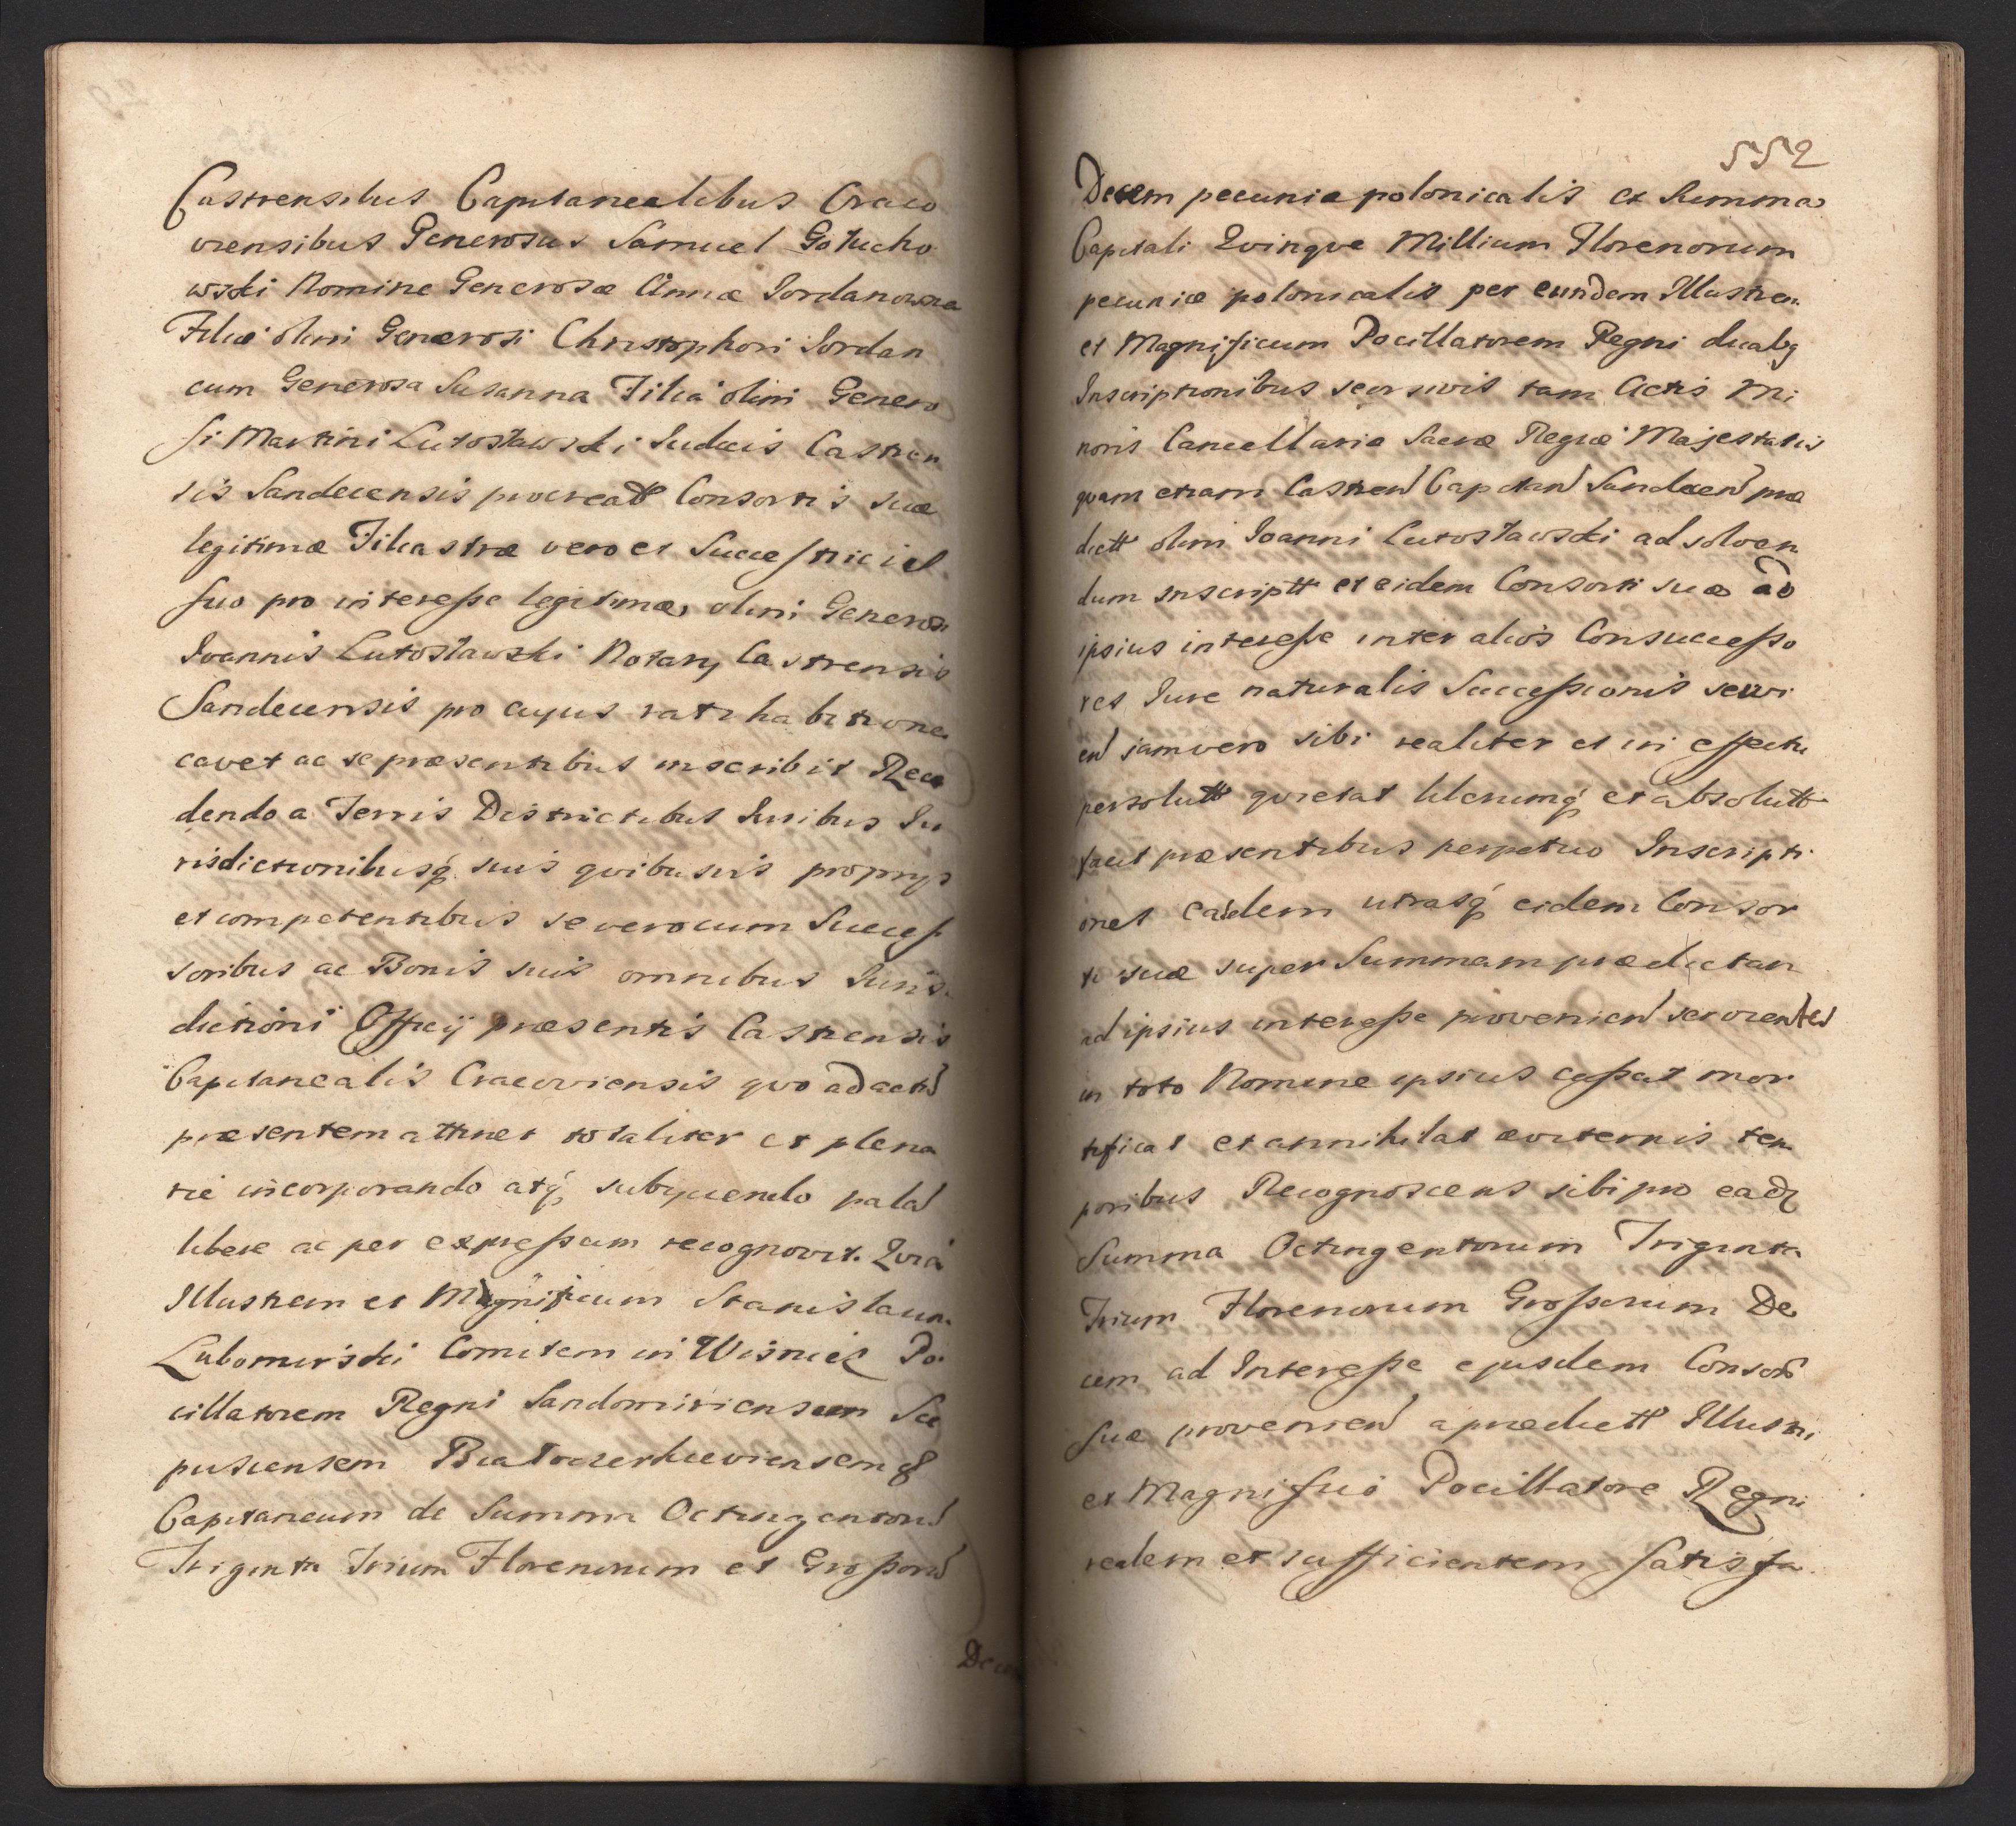 Castrensibus Capitanealibus Craco
viensibus Generosus Samuel Gołucho
wski Nomine Generosæ Annæ Jordanowna
Filiæ olim Generosi Christophori Jordan
cum Generosa Susanna Filia olim Genero
si Martini Lutosławski Judicis Castren
sis Sandecensis procreatt Consortis suæ
legitimæ Filiastræ vero et Successricis
suo pro interesse legitimæ, olim Generosi
Joannis Lutosławski Notarij Castrensis
Sandecensis pro cujus ratihabitione
cavet ac se præsentibus inscribit Rece
dendo a Terris Districtibus Juribus Ju
risdictionibusq suis quibusvis proprijs
et competentibus se vero cum Succes
soribus ac Bonis suis omnibus Juris
dictioni Officij præsentis Castrensis
Capitanealis Cracoviensis quo ad actū
præsentem attinet totaliter et plena
rie incorporando atq subijciendo palā
libere ac per expressum recognovit. Quia
Illustrem et Magnificum Stanislaum
Lubomirski Comitem in Wisnicz Po
cillatorem Regni Sandomiriensem Sce
pusiensem Białocerkieviensemq
Capitaneum de Summa Octingentorū
Triginta Trium Florenorum et Grossorū
Decem
552
Decem pecuniæ polonicalis ex Summa
Capitali Quinque Millium Florenorum
pecuniæ polonicalis per eundem Illustrem
et Magnificum Pocillatorem Regni duabq
Inscriptionibus seorsivis tam Actis Mi
noris Cancellariæ Sacræ Regiæ Majestatis
quam etiam Castren Capitan Sandecen præ
dictt olim Joanni Lutosławski ad solven
dum inscriptt et eidem Consorti suæ ad
ipsius interesse inter alios Consuccesso
res Jure naturalis Successionis servi
en jam vero sibi realiter et in effectu
persolutt quietat liberumq et absolutt
facit præsentibus perpetuo Inscripti
ones easdem utrasq eidem Consor
ti suæ super Summam prædictam
ad ipsius interesse provenien servientes
in toto Nomine ipsius cassat mor
tificat et annihilat æviternis tem
poribus Recognoscens sibi pro eadq
Summa Octingentorum Triginta
Trium Florenorum Grossorum De
cem ad Interesse ejusdem Consortt
suæ provenien a prædictt Illustri
et Magnifico Pocillatore Regni
realem et sufficientem satisfa